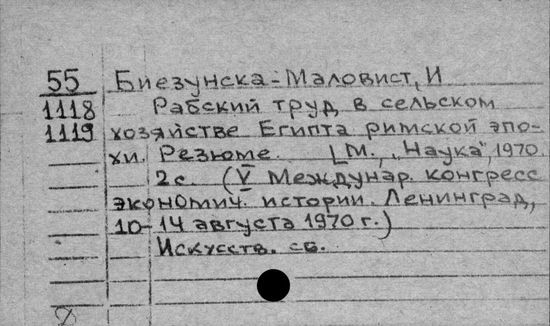 55 Биезунска-Маловист, И
1118 Рабский труд в сельском
1119 хозяйстве Египта римской эпо-
хи. Резюме. [М., „Наука", 1970.
2с. (V Междунар. конгресс
экономич. истории. Ленинград,
10-14 августа 1970 г.)
Искусств. сб.